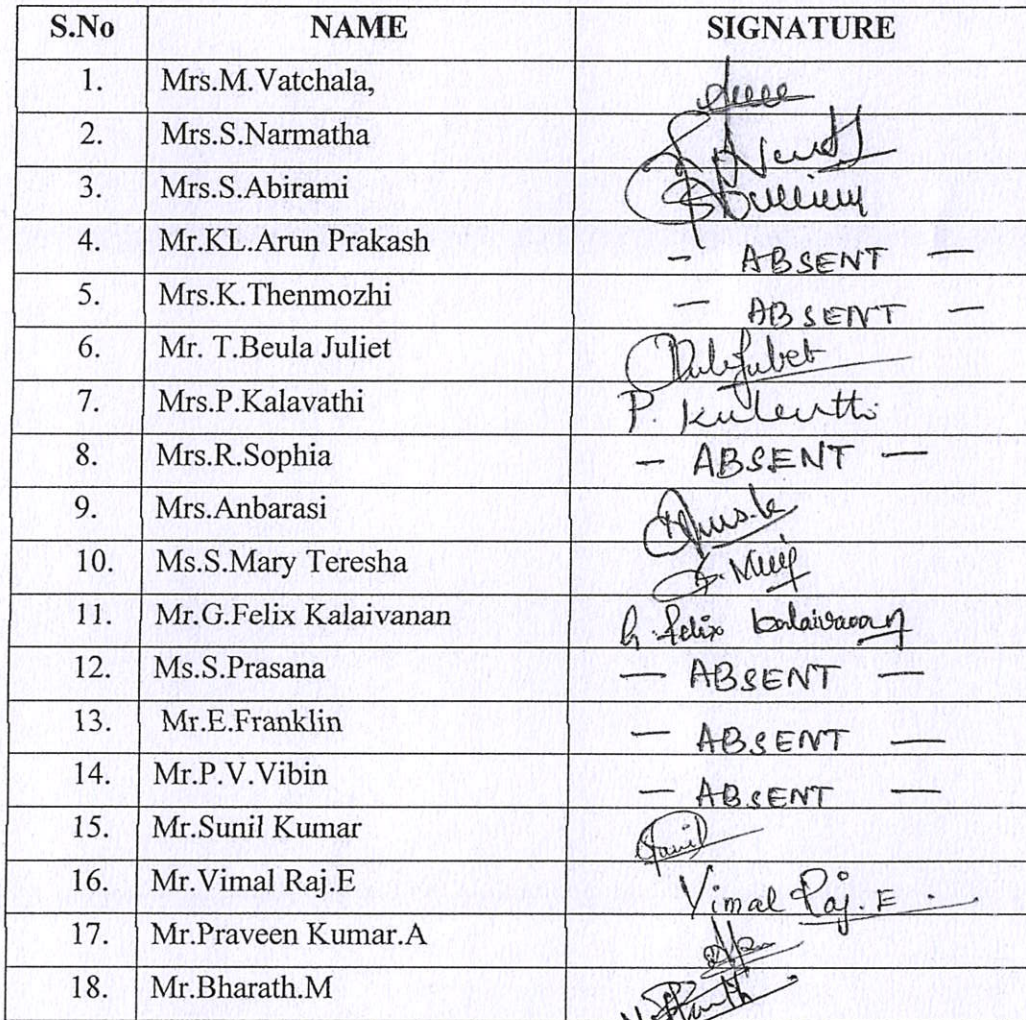 S.No NAME SIGNATURE
1. Mrs.M.Vatchala,
2. Mrs.S.Narmatha
3. Mrs.S.Abirami
4. Mr.KL.Arun Prakash - ABSENT -
5. Mrs.K.Thenmozhi - ABSENT -
6. Mr. T.Beula Juliet
7. Mrs.P.Kalavathi P.
8. Mrs.R.Sophia - ABSENT -
9. Mrs.Anbarasi
10. Ms.S.Mary Teresha
11. Mr.G.Felix Kalaivanan G. Felix kalaivanan
12. Ms.S.Prasana - ABSENT -
13. Mr.E.Franklin - ABSENT -
14. Mr.P.V.Vibin - ABSENT -
15. Mr.Sunil Kumar
16. Mr.Vimal Raj.E Vimal Raj. E
17. Mr.Praveen Kumar.A
18. Mr.Bharath.M